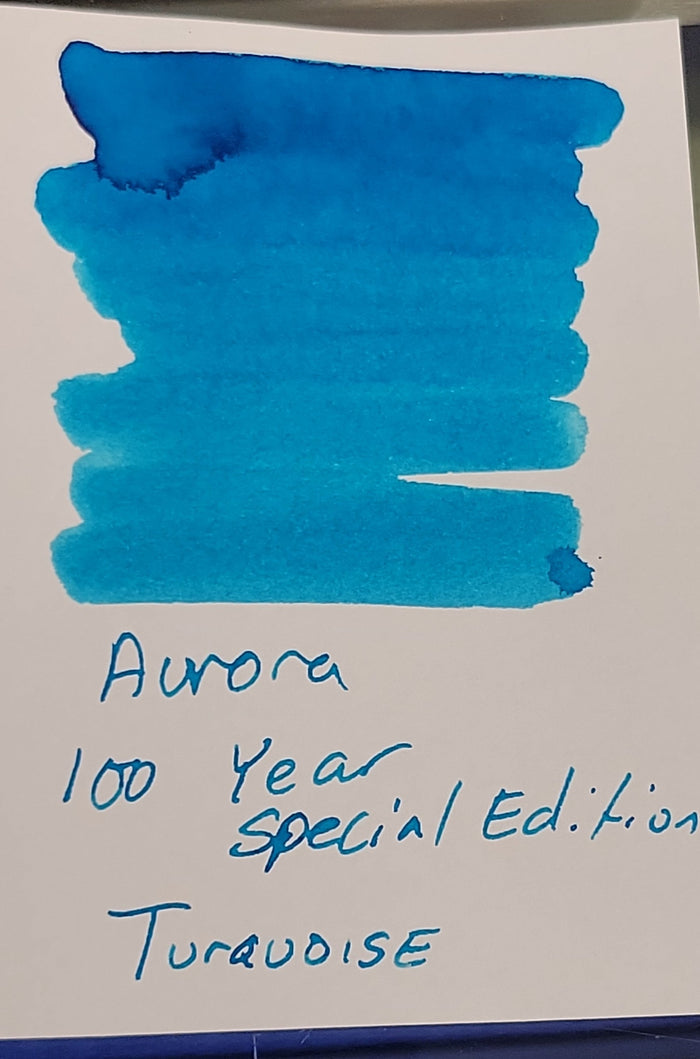 Aurora
100 Year
Special Edition
Turquoise